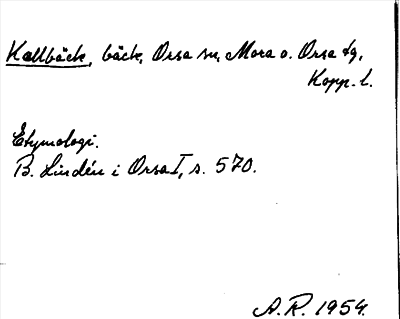 Kallbäck, bäck, Orsa sn, Mora o. Orsa tg,
Kopp. l.
Etymologi.
B. Lindén i Orsa I, s. 570.
A.R. 1954.